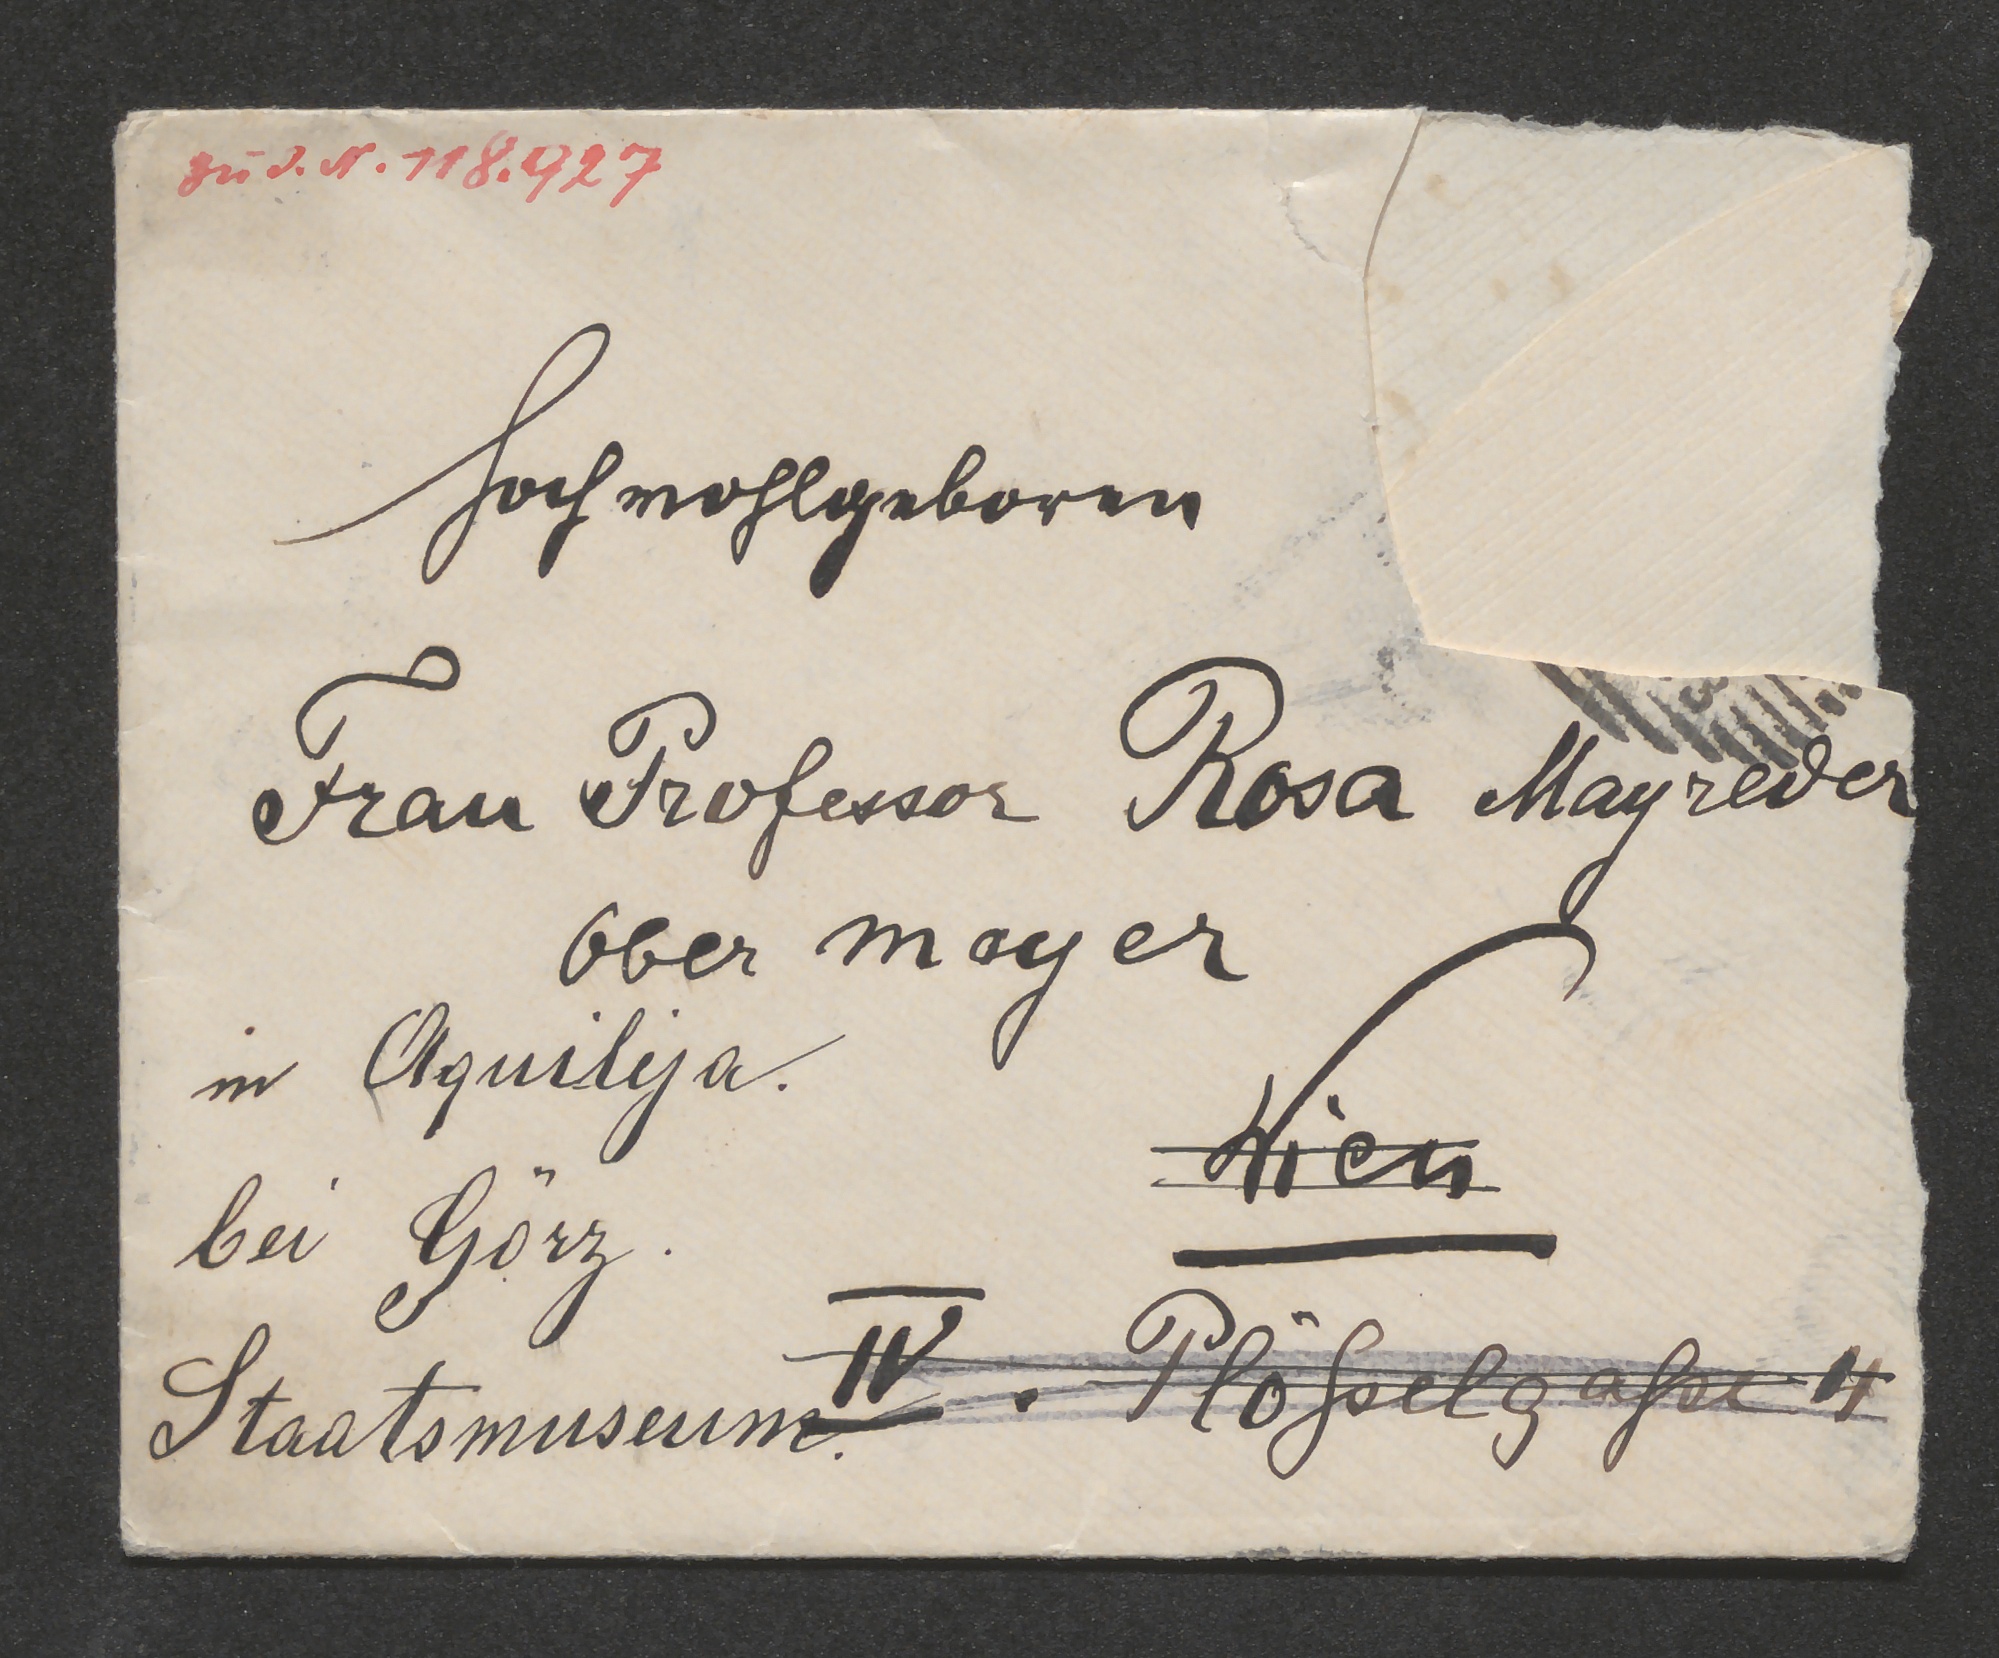 zu J. N. 118.927
Hochwohlgeboren
Frau Professor Rosa Mayreder
Obermayer
in Aquileja.
bei Görz.
Wien
Staatsmuseum.
IV. Plößelgaße 4